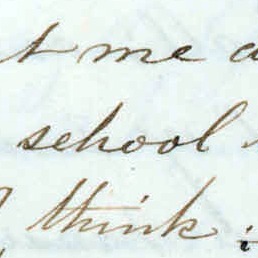 me
school
think